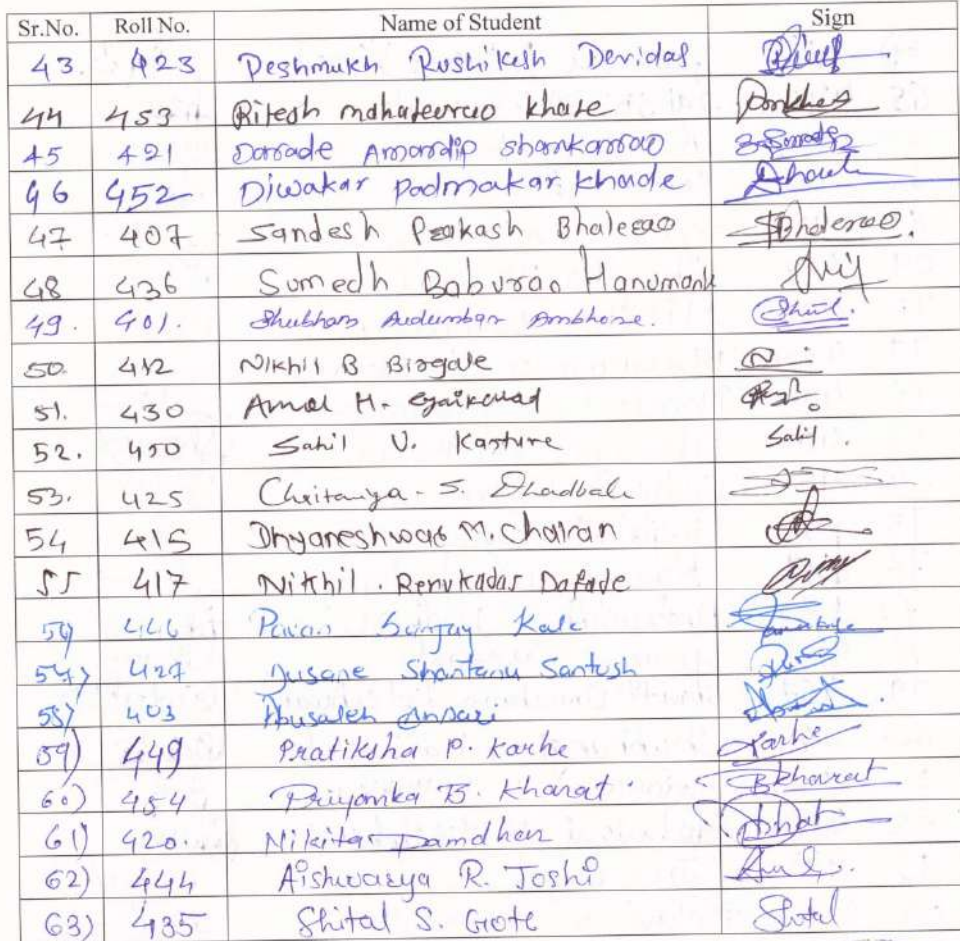 Sr.No. Roll No. Name of Student Sign
43 423 Deshmukh Rushikesh Devidas
44 453 Ritesh mahateerao khare
45 421 Darade Amardip shankarrao
46 452 Diwakar Padmakar Khade
47 407 Sandesh Prakash Bhalerao SBhalerao.
48 436 Sumedh Baburao Hanumank
49. 401. Shubham Audumbar Ambhore.
50. 412 Nikhil B Birgale
51. 430 Amol H. Gaikawad
52. 450 Sahil V. Kasture Sahil.
53. 425 Chaitanya. S. Dhadbale
54 415 Dnyaneshwar M. Chavan
55 417 Nikhil. Renukadas Dafade
446 Pavan Sanjay Kale
57) 427 Dusane Shantanu Santosh
58) 403 Abusaleh Ansari
59) 449 Pratiksha P. Karhe Karhe
60) 454 Priyanka B. Kharat. BKharat
61) 420. Nikita Damdhar
62) 444 Aishwarya R. Joshi
63) 435 Shital S. Gote Shital